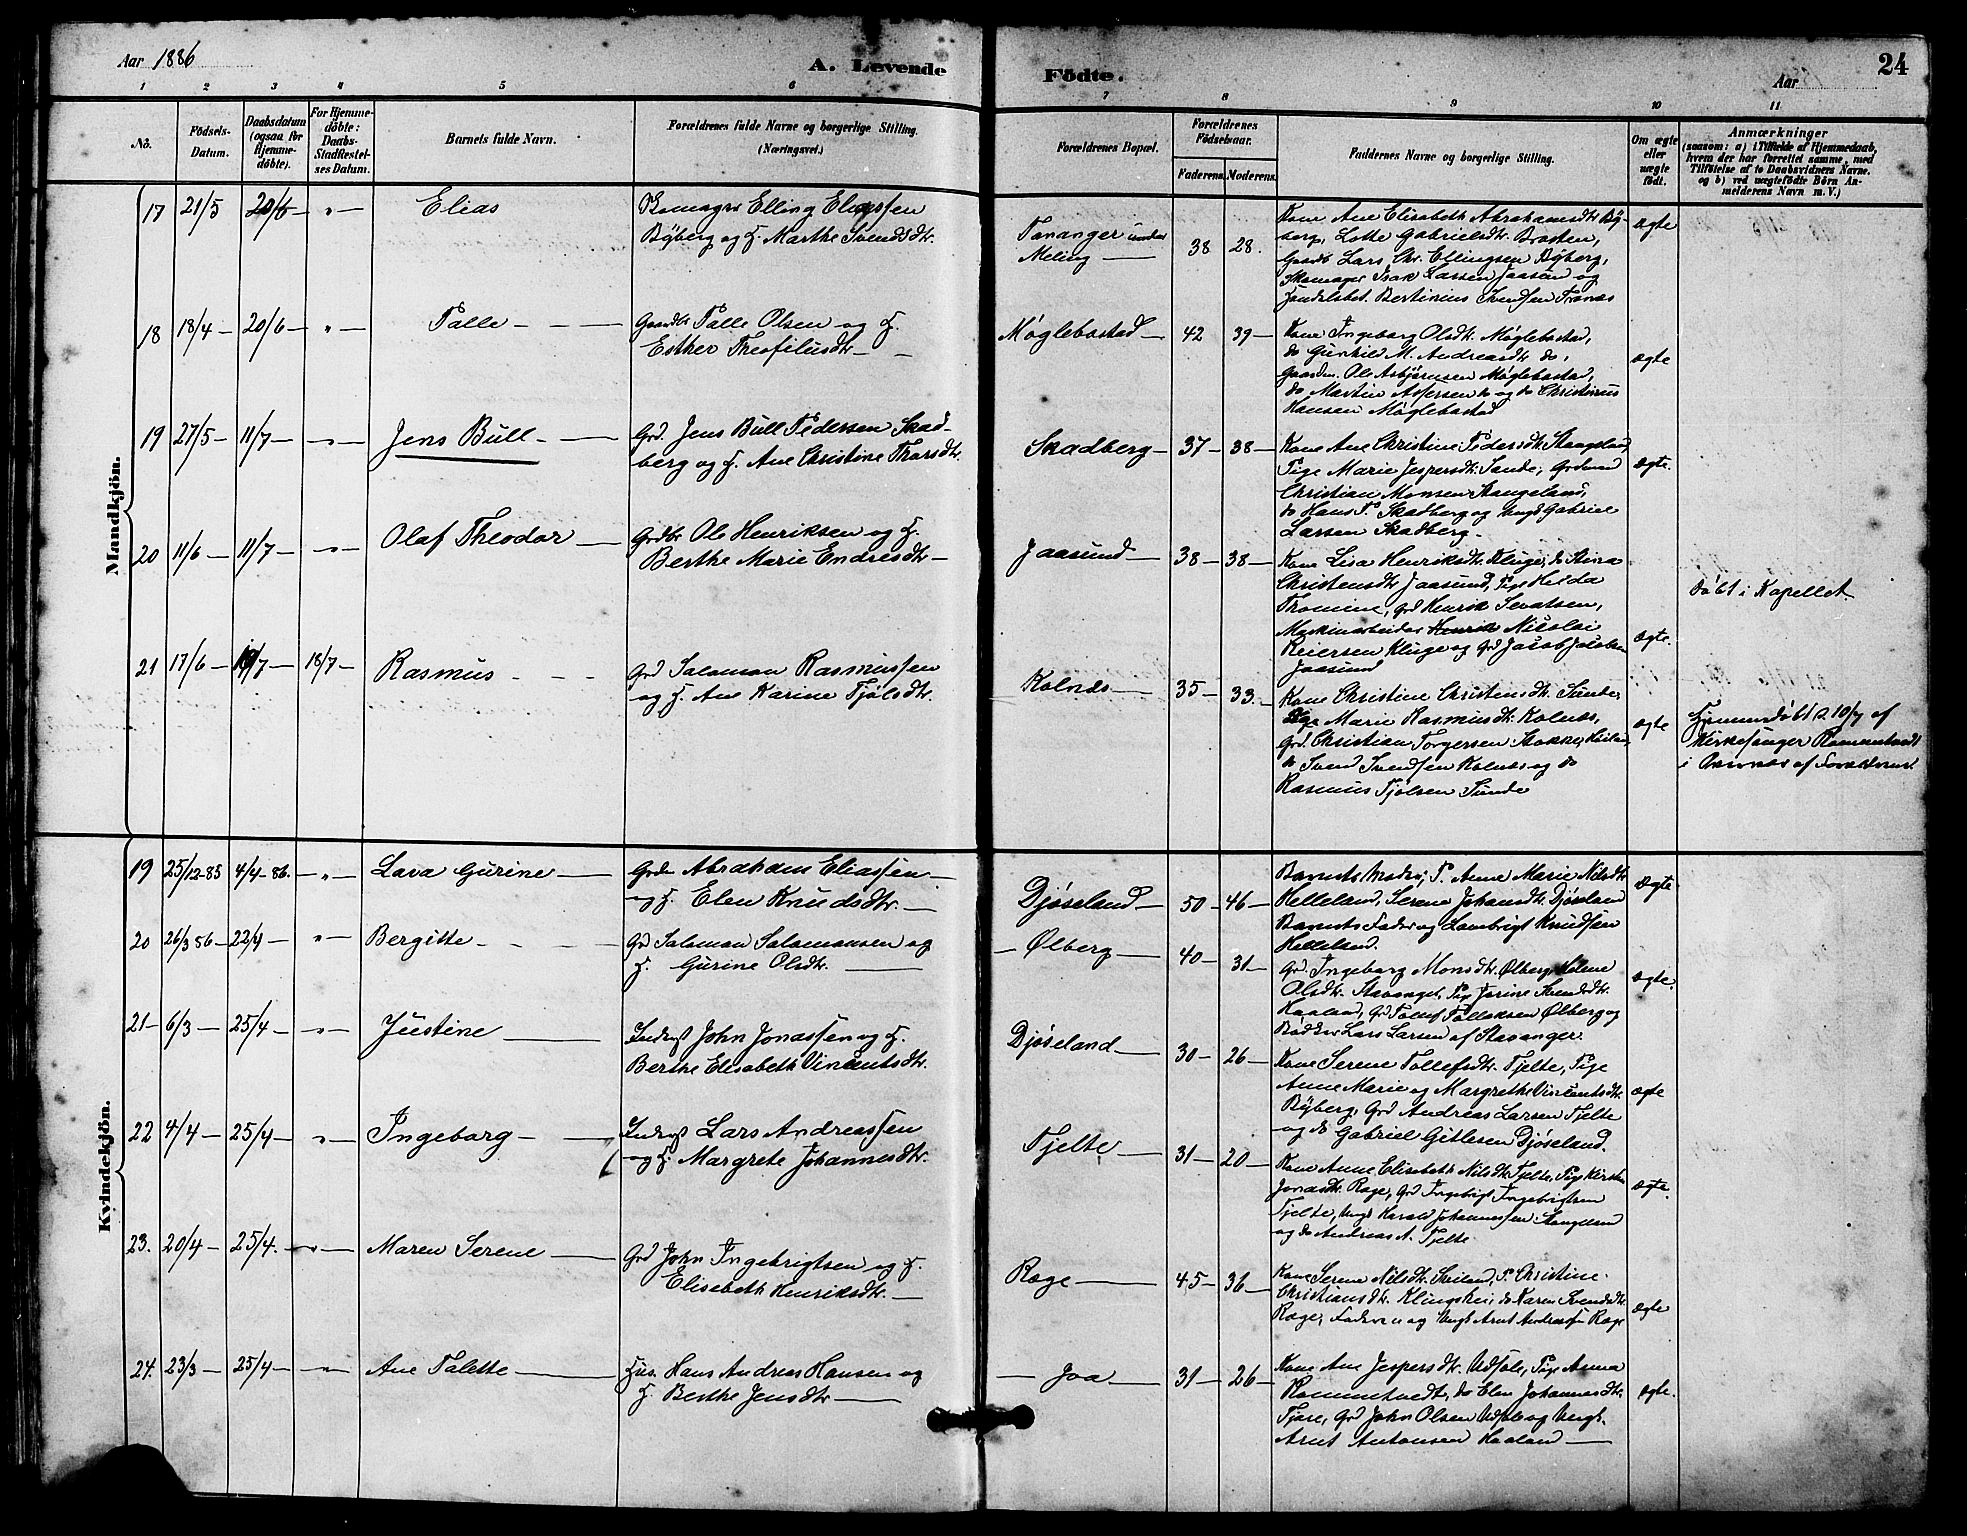 Aar 1886
A. Levende Födte.
Aar
24
1 2 3 4 5 6 7 8 9 10 11
No.
Födsels-Datum.
Daabsdatum (ogsaa for Hjemme-döbte).
For Hjemme-döbte: Daabs-Stadfæstel-ses Datum.
Barnets fulde Navn.
Forældrenes fulde Navne og borgerlige Stilling. (Næringsvei.)
Forældrenes Bopæl.
Forældrenes Födselsaar.
Faderens. Moderens.
Faddernes Navne og borgerlige Stilling.
Om ægte eller uægte födt.
Anmærkninger
(saasom: a) i Tilfælde af Hjemmedaab,
hvem der har forrettet samme, med
Tilföielse af to Daabsvidners Navne.
og b) ved uægtefödte Börn An-
melderens Navn m. V.)
Mandkjön.
17 21/5 20/6 " Elias
Skomager Elling Eliassen
Byberg og H. Marthe Svendsdtr.
Tananger under
Meling 38 28.
Kone Ane Elisabeth Abrahamsdtr By-
berg, Lotte Gabrielsdtr. Braaten,
Gaardb Lars Chr. Ellingsen Byberg,
Skomager Isak Larsen Jaasund og
Handelsbet. Bertinius Svendsen
ægte
18 18/4 20/6 " Talle
Gaardbr Talle Olsen og H.
Esther Theofilusdtr
Møglebostad 42 39
Kone Ingeborg Olsdtr. Møglebostad,
do Gunhild M. Andreasdtr do,
Gaardm. Ole Asbjørnsen Møglebostad,
do Martin Aspersen do og do Christinius
Hansen Møglebostad
ægte
19 27/5 11/7 " Jens Bull
Grd. Jens Bull Pedersen Skad-
berg og H. Ane Christine Thorsdtr.
Skadberg 37 38
Kone Ane Christine Pedersdtr. Stangeland,
Pige Marie Jespersdtr. Sande; Grdmd
Christian Monsen Stangeland,
do Hans P. Skadberg og Ungk Gabriel
Larsen Skadberg.
ægte.
20 11/6 11/7 " Olaf Theodor
Grdbr Ole Henriksen og H.
Berthe Marie Endresdtr
Jaasund 38 38
Kone Lisa Henriksdtr. Kluge, do Stina
Christensdtr Jaasund, Pige Helda
Tromine, Grd Henrik Seratsen,
Maskinarbeider Henrik Nicolai
Reiersen Kluge og Grd Jacob Jacobsen
Jaasund
ægte.
Döbt i Kapellet.
21 17/6 18/7 18/7 Rasmus
Grd Salamon Rasmussen
og H. Ane Karine Tjølsdtr.
Kolnæs 35 33.
Kone Christine Christensdtr. Sunde,
Pige Marie Rasmusdtr. Kolnæs,
Grd. Christian Torgersen Stokke,
do Svend Svendsen Kolnæs og do
Rasmus Tjølsen Sunde
ægte
Hjemmedöbt d. 10/7 af
Kirkesanger Rommetvedt
i Nærvær af Forældrene.
Kvindekjön.
19 25/12-85 4/4-86. " Lava Gurine
Grdm Abraham Eliassen
og H. Elen Knudsdtr.
Djøseland 50 46
Barnets Moder; P. Anne Marie Nilsdtr.
Helleland, Serene Johansdtr. Djøseland
Barnets Fader og Lambrigt Knudsen
Helleland.
Ægte
20 26/3 86 22/4 " Bergitte
Grd Salamon Salamonsen og
H. Gurine Olsdtr.
Ølberg 40 31
Grd. Ingeborg Monsdtr. Ølberg, Helene
Olsdtr. Stavanger, Pige Jorine Svendsdtr.
Haaland, Grd Tollef Tolleksen Ølberg og
Bødker Lars Larsen af Stavanger.
ægte.
21 6/3 25/4 " Justine
Inderst John Jonassen og H.
Berthe Elisabeth Vincentsdtr.
Djøseland 30 26
Kone Serene Tollefsdtr. Tjelte, Pige
Anne Marie og Margrethe Vincentsdtr.
Byberg, Grd Andreas Larsen Tjelte
og do Gabriel Gitlesen Djøseland.
ægte
22 4/4 25/4 " Ingeborg
Inderst Lars Andreassen
og H. Margrete Johannesdtr.
Tjelte 31 20
Kone Anne Elisabeth Nilsdtr. Tjelte, Pige Kirsten
Jonasdtr. Ræge, Grd Ingebrigt Ingebrigtsen
Tjelte, Ungk Harald Johannessen Stangeland
og do Andreas A. Tjelte
ægte.
23. 20/4 25/4. " Maren Serene
Grd John Ingebrigtsen og H.
Elisabeth Henriksdtr.
Ræge 45 36
Kone Serene Nilsdtr. Skiland, P. Christine
Christiansdtr. Klingshei, do Karen Svendsdtr.
Ræge, Faderen og Ungk Arnt Andreassen Ræge
ægte
24. 23/3 25/4 " Ane Talette
Hus. Hans Andreas Hansen og
H. Berthe Jensdtr
Joa 31 26
Kone Ane Jespersdtr. Udsole, Pige Anna
Rommetvedt, do Elen Johannesdtr.
Tjore, Grd John Olsen Udsole og Ungk.
Arnt Antonsen Haaland
ægte.